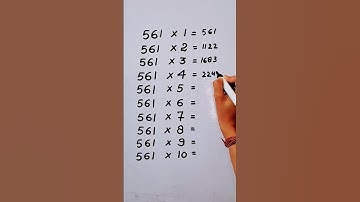 561 x 1 = 561
561 x 2 = 1122
561 x 3 = 1683
561 x 4 = 224
561 x 5 =
561 x 6 =
561 x 7 =
561 x 8 =
561 x 9 =
561 x 10 =